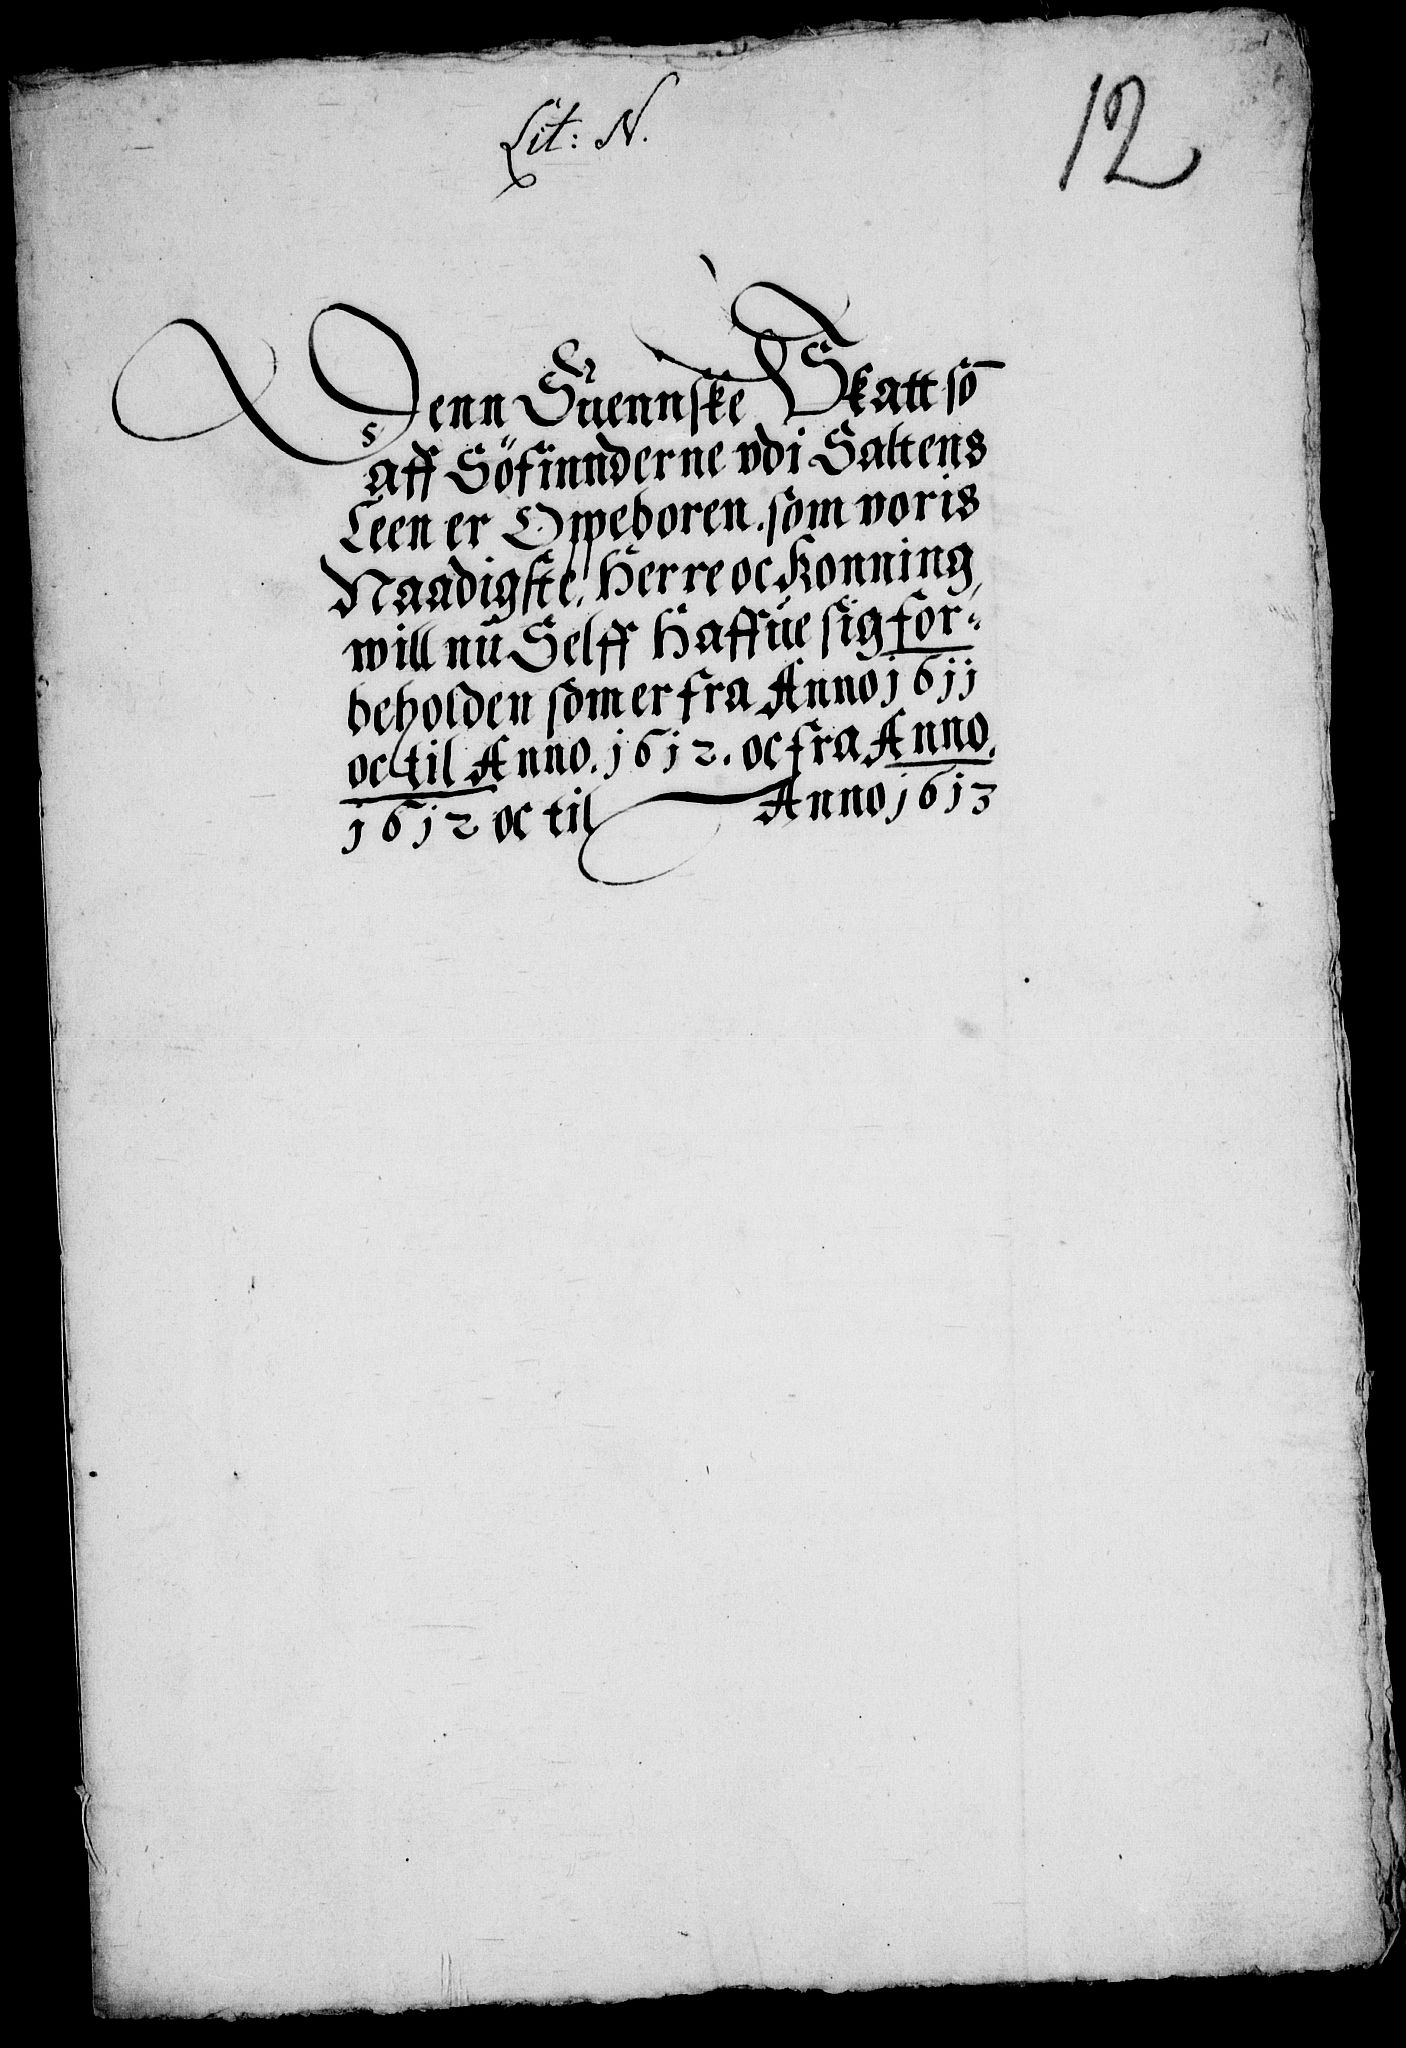 Lit: N.
12
Denn Suennske Skatt sō
aff Söfinnderne vdi Saltens
Leen er Oppeboren. som voris
Naadigste, Herre oc Konning,
will nu Selff Haffue sig for-
beholden som er fra Anno 1611
oc til Anno. 1612. oc fra Anno.
1612 oc til Anno 1613